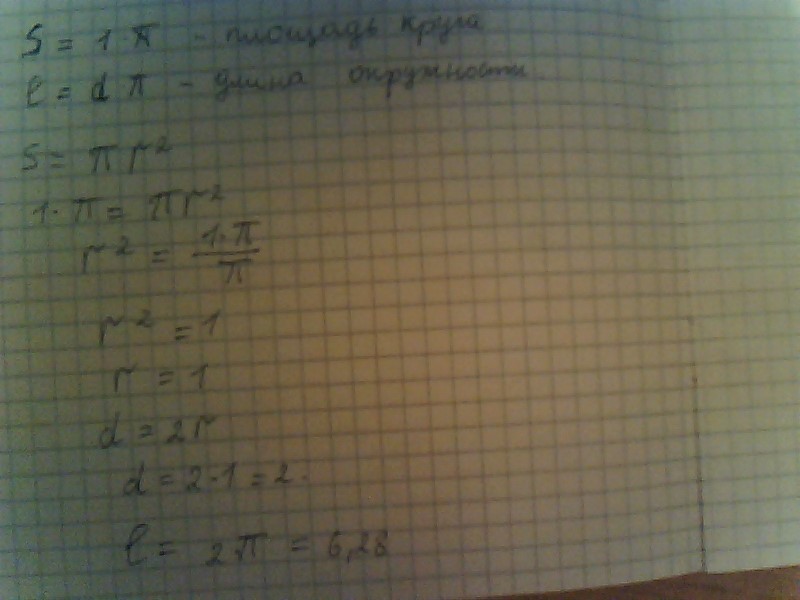 S = 1·π - площадь круга
ℓ = d π - длина окружности.
S = πr²
1·π = πr²
r² = 1·π/π
r² = 1
r = 1
d = 2r
d = 2·1 = 2.
ℓ = 2π = 6,28